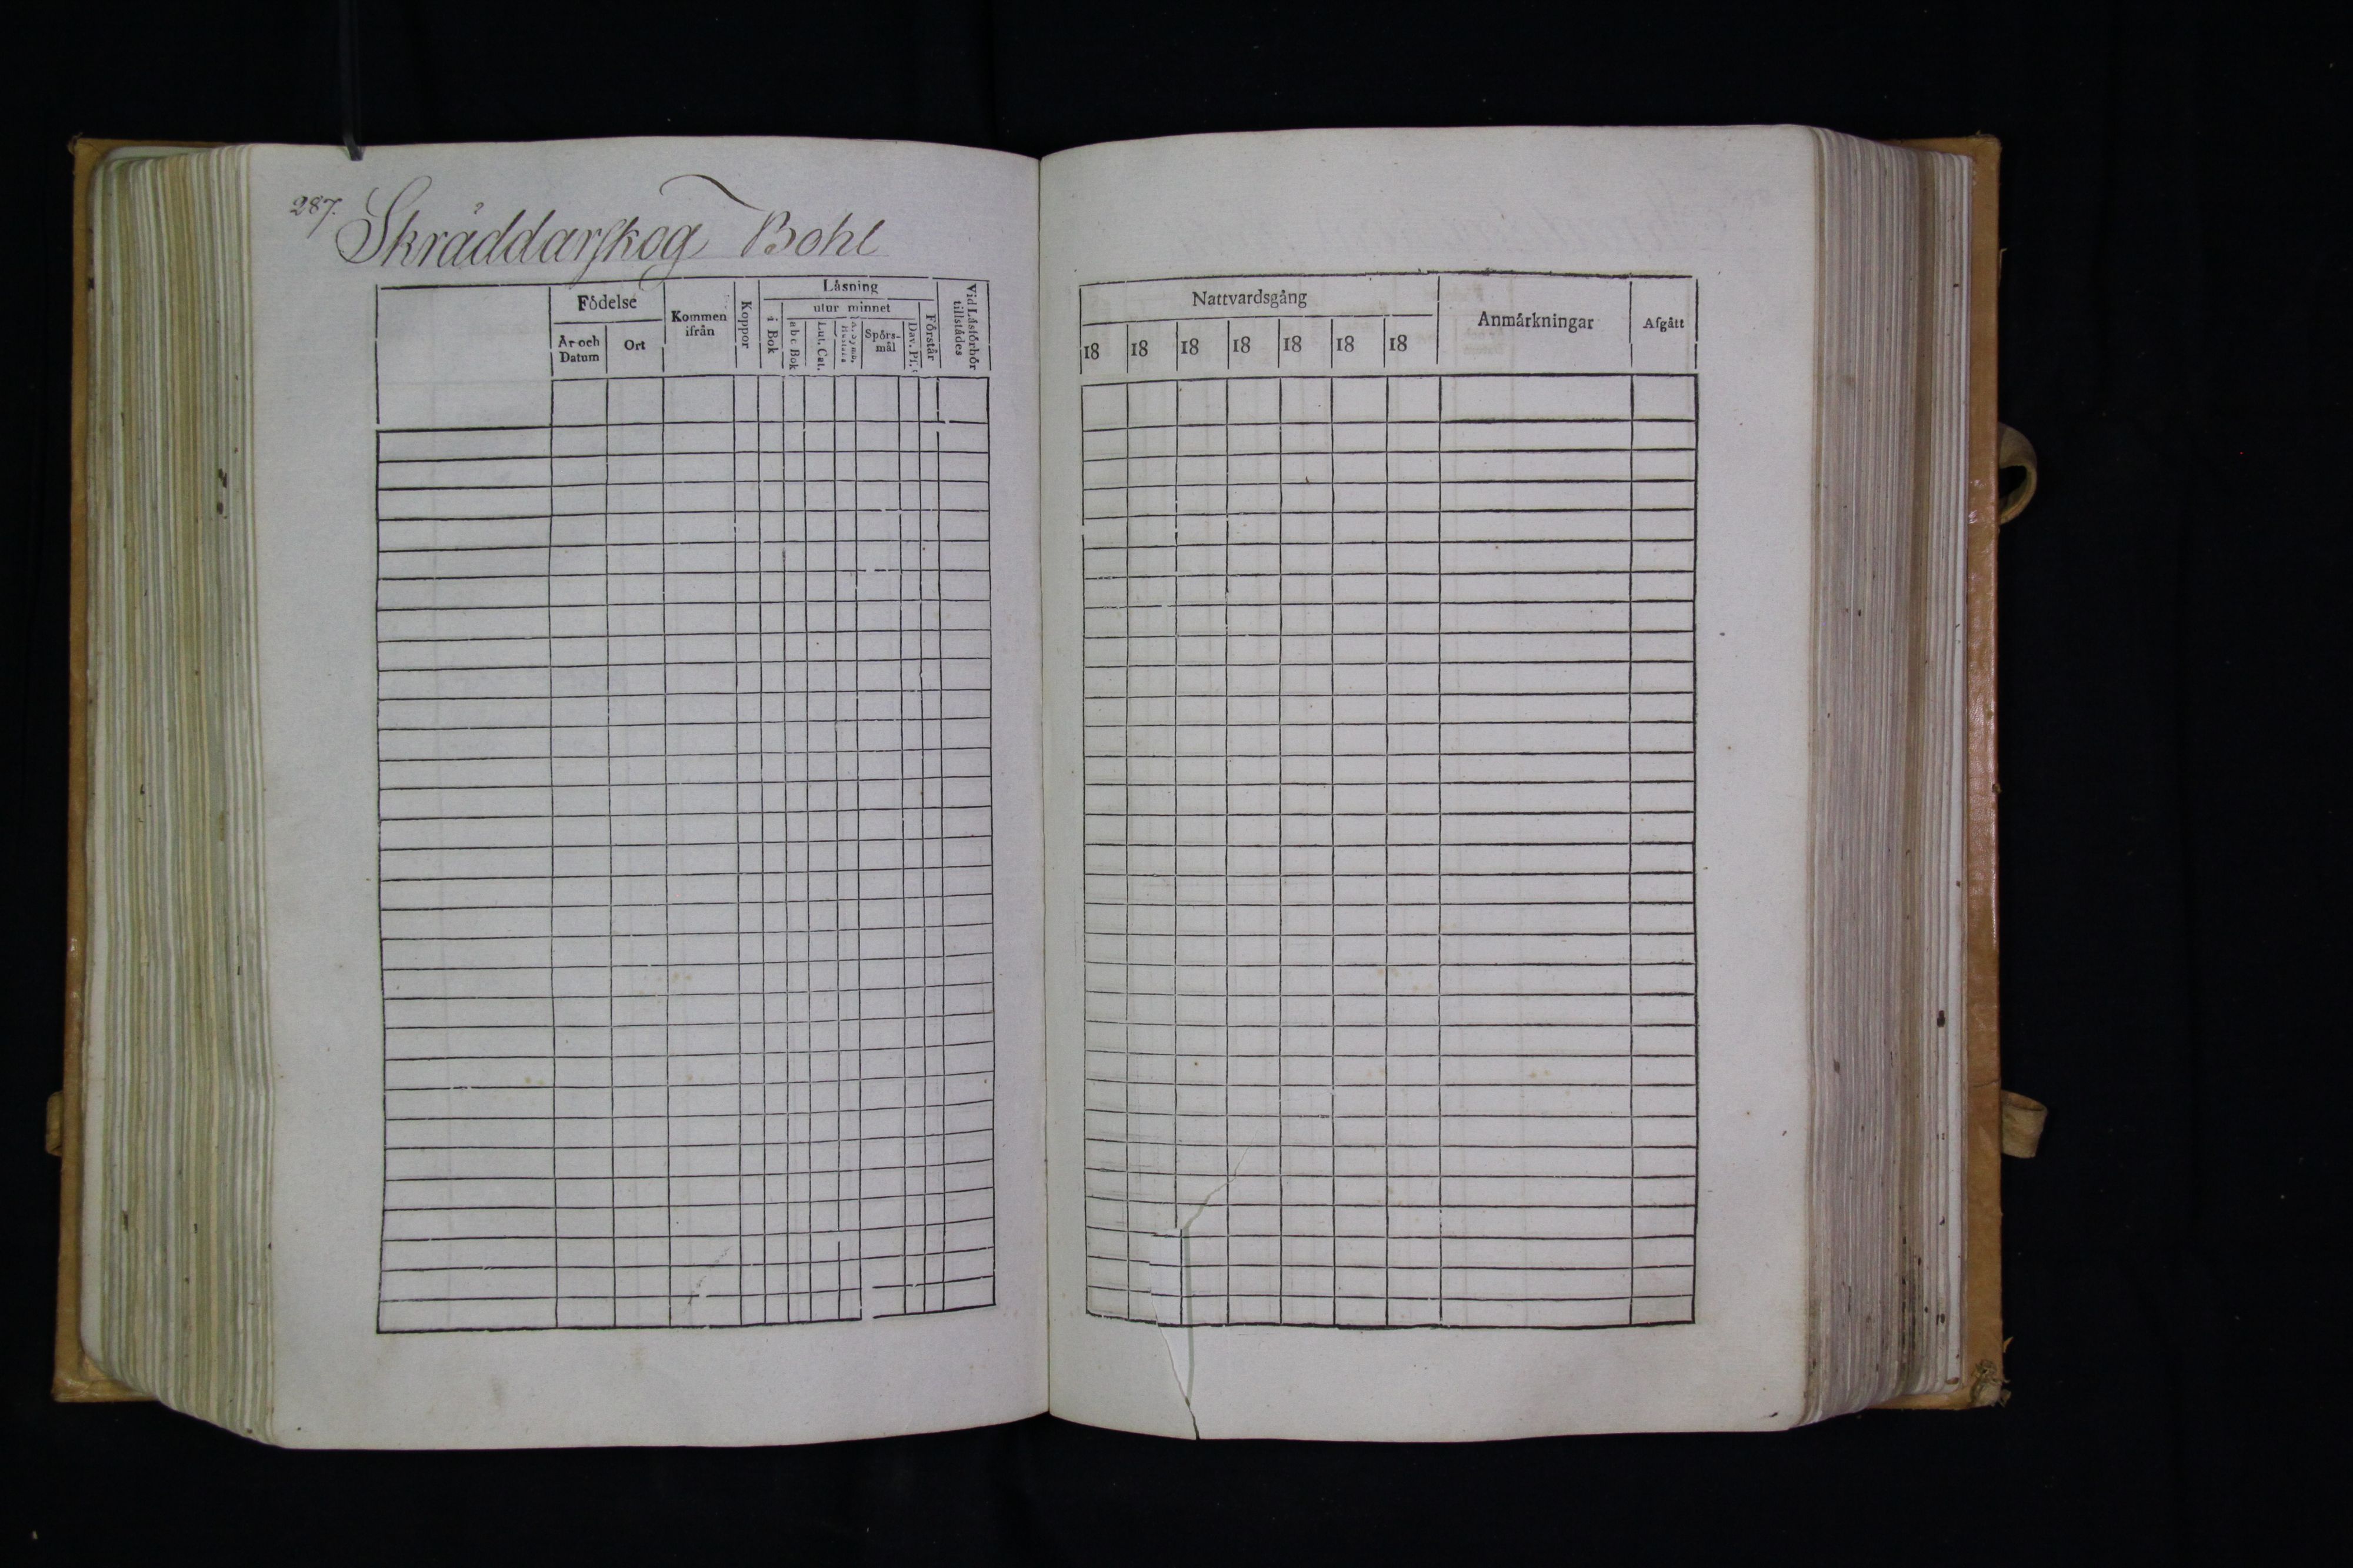 287.
Skräddarskog Bohl
Födelse
År och Datum
Ort
Kommen ifrån
Koppor
Läsning
i Bok
utur minnet
abc Bok
Lut. Cat.
Spörs-
mål
Dav. Ps.
Förstår
Vid Läsförhör
tillstädes
Nattvardsgång
18 18 18 18 18 18 18
Anmärkningar
Afgått